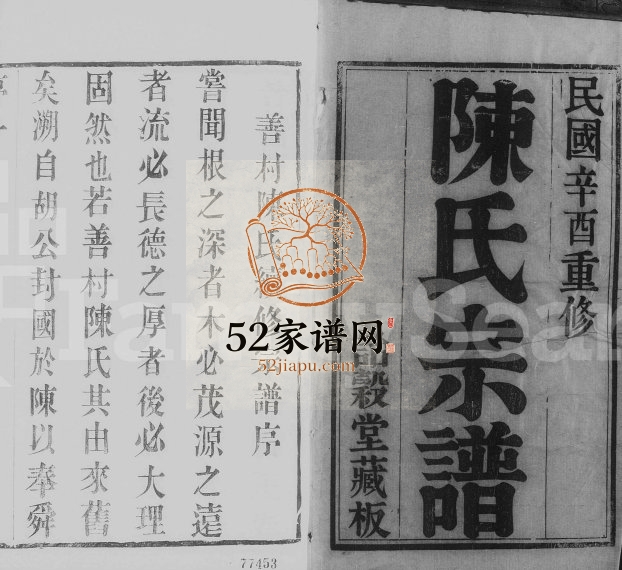 民國辛酉重修
陳氏宗譜
穀堂藏板
善村陳氏續修宗譜序
嘗聞根之深者木必茂源之遠
者流必長德之厚者後必大理
固然也若善村陳氏其由來舊
矣溯自胡公封國於陳以奉舜
52家谱网
52jiapu.com
77453